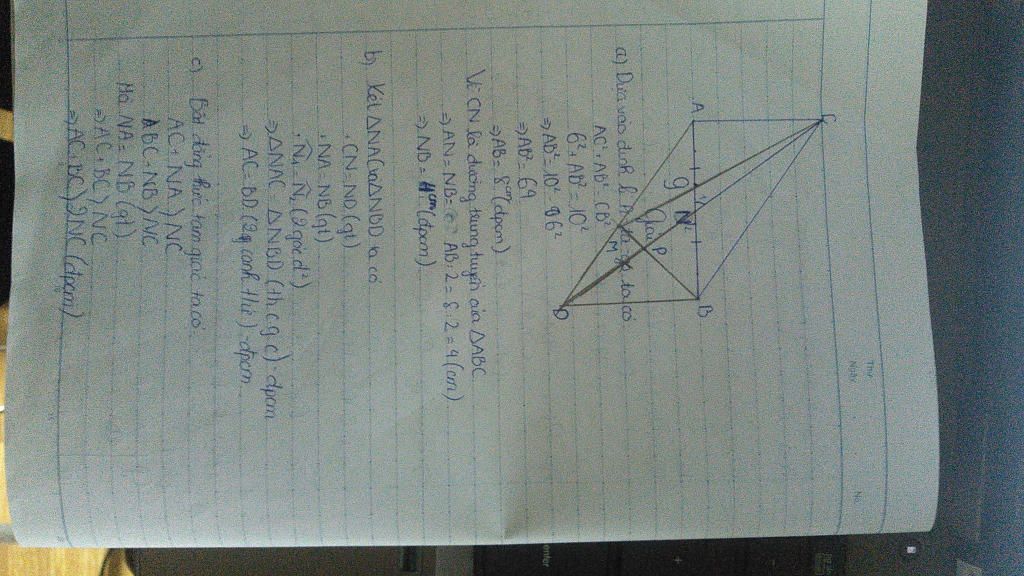 Thứ
Ngày
N
C
A
B
N
g
P
M
D
a) Dựa vào định lí ta có
AC² + AB² = CB²
6² + AB² = 10²
⇒ AB² = 10² - 6²
⇒ AB² = 64
⇒ AB = 8cm (đpcm)
Vì CN là đường trung tuyến của ΔABC
⇒ AN = NB = AB : 2 = 8 : 2 = 4 (cm)
⇒ NB = 4cm (đpcm)
b) Xét ΔNAC và ΔNBD ta có
. CN = ND (gt)
. NA = NB (gt)
. N̂₁ = N̂₂ (2 góc đ²)
⇒ ΔNAC = ΔNBD (th c.g.c) - đpcm
⇒ AC = BD (2 cạnh t/ứ) - đpcm
c) Bất đẳng thức tam giác ta có
AC + NA > NC
BC + NB > NC
Mà NA = NB (gt)
⇒ AC + BC > NC
⇒ AC + BC > 2NC (đpcm)
enter